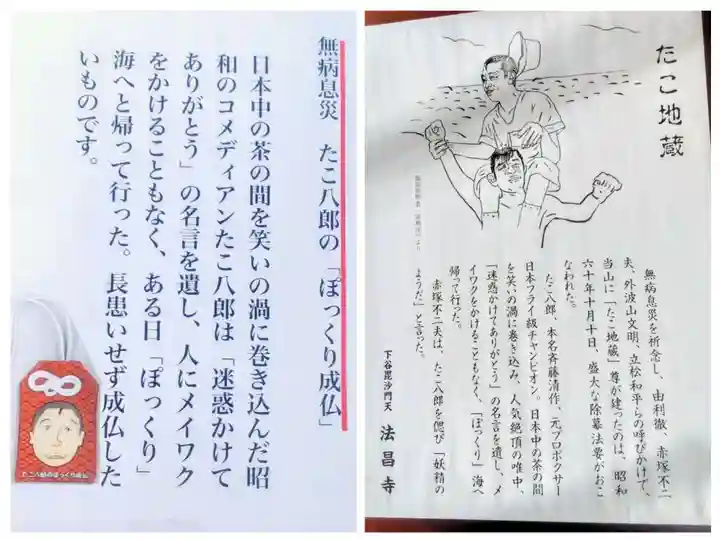 無病息災 たこ八郎の「ぽっくり成仏」
日本中の茶の間を笑いの渦に巻き込んだ昭
和のコメディアンたこ八郎は「迷惑かけて
ありがとう」の名言を遺し、人にメイワク
をかけることもなく、ある日「ぽっくり」
海へと帰って行った。長患いせず成仏した
いものです。
たこ八郎のぽっくり成仏
たこ地蔵
無病息災を祈念し、由利徹、赤塚不二
夫、外波山文明、立松和平らの呼びかけで、
当山に「たこ地蔵」尊が建ったのは、昭和
六十年十月十日、盛大な除幕法要がおこ
なわれた。
たこ八郎、本名斉藤清作、元プロボクサー
日本フライ級チャンピオン。日本中の茶の間
を笑いの渦に巻き込み、人気絶頂の唯中、
「迷惑かけてありがとう」の名言を遺し、メ
イワクをかけることもなく、「ぽっくり」海へ
帰って行った。
赤塚不二夫は、たこ八郎を偲び「妖精の
ようだ」と言った。
下谷毘沙門天 法昌寺